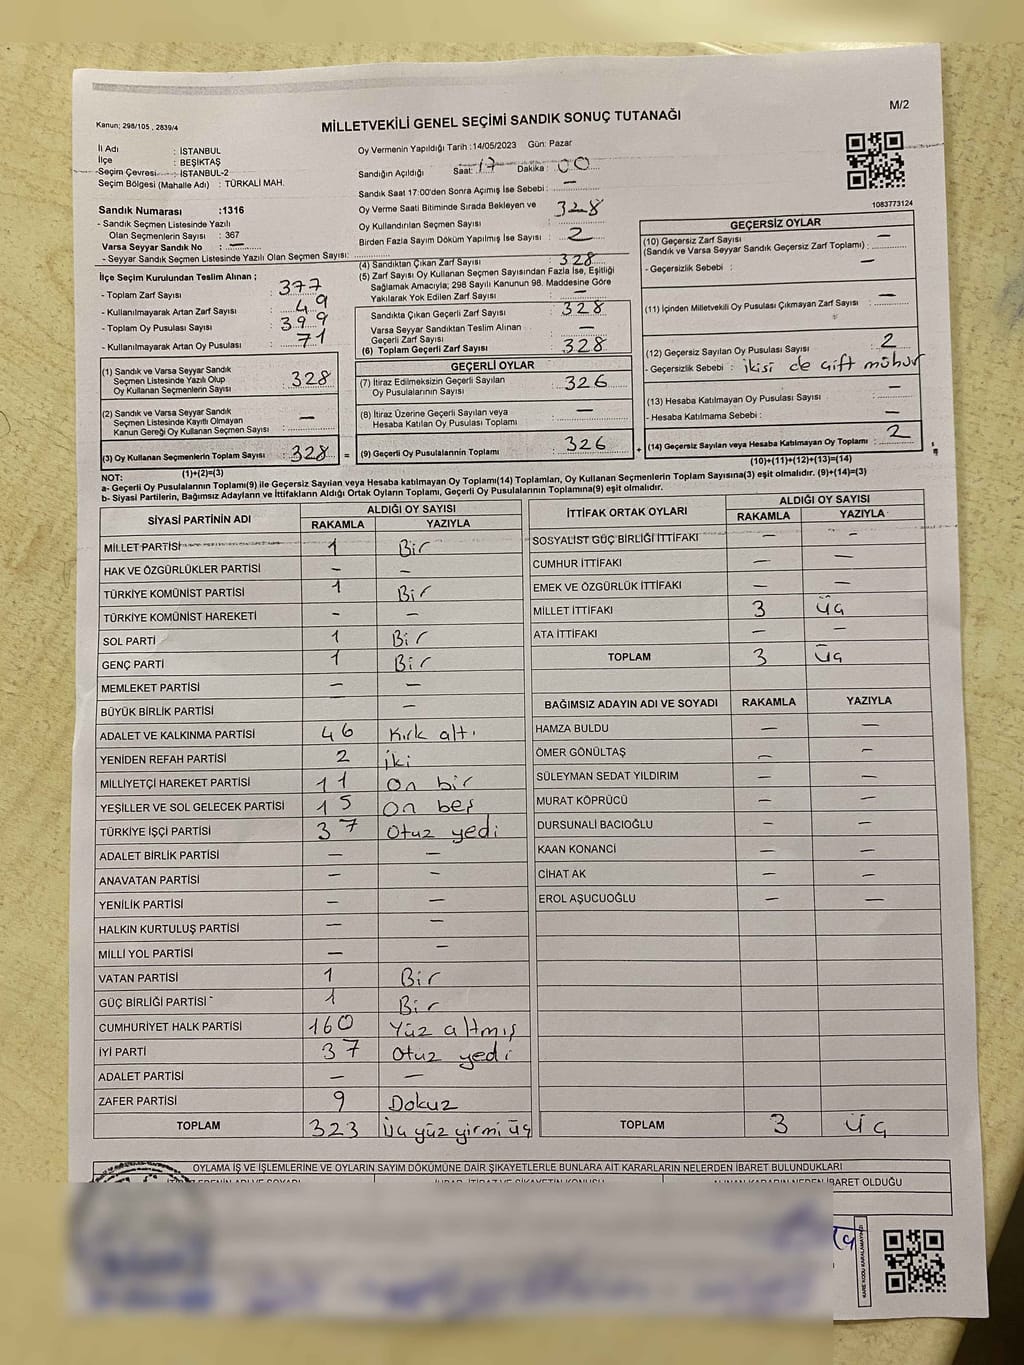 M/2
Kanun; 298/105 , 2839/4
MİLLETVEKİLİ GENEL SEÇİMİ SANDIK SONUÇ TUTANAĞI
İl Adı : İSTANBUL
İlçe : BEŞİKTAŞ
Seçim Çevresi : İSTANBUL-2
Seçim Bölgesi (Mahalle Adı) : TÜRKALİ MAH.
Oy Vermenin Yapıldığı Tarih :14/05/2023 Gün: Pazar
Sandığın Açıldığı Saat: 17 Dakika : 00
Sandık Saat 17:00'den Sonra Açımış İse Sebebi : —
Oy Verme Saati Bitiminde Sırada Bekleyen ve
Oy Kullandırılan Seçmen Sayısı : 328
Birden Fazla Sayım Döküm Yapılmış İse Sayısı : 2
1083773124
Sandık Numarası :1316
- Sandık Seçmen Listesinde Yazılı
Olan Seçmenlerin Sayısı : 367
Varsa Seyyar Sandık No : —
- Seyyar Sandık Seçmen Listesinde Yazılı Olan Seçmen Sayısı:
İlçe Seçim Kurulundan Teslim Alınan ;
- Toplam Zarf Sayısı : 377
- Kullanılmayarak Artan Zarf Sayısı : 49
- Toplam Oy Pusulası Sayısı : 399
- Kullanılmayarak Artan Oy Pusulası : 71
(1) Sandık ve Varsa Seyyar Sandık
Seçmen Listesinde Yazılı Olup
Oy Kullanan Seçmenlerin Sayısı : 328
(2) Sandık ve Varsa Seyyar Sandık
Seçmen Listesinde Kayıtlı Olmayan
Kanun Gereği Oy Kullanan Seçmen Sayısı : —
(3) Oy Kullanan Seçmenlerin Toplam Sayısı : 328 =
(1)+(2)=(3)
(4) Sandıktan Çıkan Zarf Sayısı : 328
(5) Zarf Sayısı Oy Kullanan Seçmen Sayısından Fazla İse, Eşitliği
Sağlamak Amacıyla; 298 Sayılı Kanunun 98. Maddesine Göre
Yakılarak Yok Edilen Zarf Sayısı : —
Sandıkta Çıkan Geçerli Zarf Sayısı : 328
Varsa Seyyar Sandıktan Teslim Alınan
Geçerli Zarf Sayısı : —
(6) Toplam Geçerli Zarf Sayısı : 328
GEÇERLİ OYLAR
(7) İtiraz Edilmeksizin Geçerli Sayılan
Oy Pusulalarının Sayısı : 326
(8) İtiraz Üzerine Geçerli Sayılan veya
Hesaba Katılan Oy Pusulası Toplamı : —
(9) Geçerli Oy Pusulalarının Toplamı : 326 +
GEÇERSİZ OYLAR
(10) Geçersiz Zarf Sayısı
(Sandık ve Varsa Seyyar Sandık Geçersiz Zarf Toplamı) : —
- Geçersizlik Sebebi : —
(11) İçinden Milletvekili Oy Pusulası Çıkmayan Zarf Sayısı : —
(12) Geçersiz Sayılan Oy Pusulası Sayısı : 2
- Geçersizlik Sebebi : ikisi de çift mühür
(13) Hesaba Katılmayan Oy Pusulası Sayısı : —
- Hesaba Katılmama Sebebi : —
(14) Geçersiz Sayılan veya Hesaba Katılmayan Oy Toplamı : 2
(10)+(11)+(12)+(13)=(14)
NOT:
a- Geçerli Oy Pusulalarının Toplamı(9) ile Geçersiz Sayılan veya Hesaba katılmayan Oy Toplamı(14) Toplamları, Oy Kullanan Seçmenlerin Toplam Sayısına(3) eşit olmalıdır. (9)+(14)=(3)
b- Siyasi Partilerin, Bağımsız Adayların ve İttifakların Aldığı Ortak Oyların Toplamı, Geçerli Oy Pusulalarının Toplamına(9) eşit olmalıdır.
SİYASİ PARTİNİN ADI ALDIĞI OY SAYISI
RAKAMLA YAZIYLA
MİLLET PARTİSİ 1 Bir
HAK VE ÖZGÜRLÜKLER PARTİSİ — —
TÜRKİYE KOMÜNİST PARTİSİ 1 Bir
TÜRKİYE KOMÜNİST HAREKETİ — —
SOL PARTİ 1 Bir
GENÇ PARTİ 1 Bir
MEMLEKET PARTİSİ — —
BÜYÜK BİRLİK PARTİSİ — —
ADALET VE KALKINMA PARTİSİ 46 Kırk altı
YENİDEN REFAH PARTİSİ 2 iki
MİLLİYETÇİ HAREKET PARTİSİ 11 On bir
YEŞİLLER VE SOL GELECEK PARTİSİ 15 On beş
TÜRKİYE İŞÇİ PARTİSİ 37 Otuz yedi
ADALET BİRLİK PARTİSİ — —
ANAVATAN PARTİSİ — —
YENİLİK PARTİSİ — —
HALKIN KURTULUŞ PARTİSİ — —
MİLLİ YOL PARTİSİ — —
VATAN PARTİSİ 1 Bir
GÜÇ BİRLİĞİ PARTİSİ 1 Bir
CUMHURİYET HALK PARTİSİ 160 Yüz altmış
İYİ PARTİ 37 Otuz yedi
ADALET PARTİSİ — —
ZAFER PARTİSİ 9 Dokuz
TOPLAM 323 Üç yüz yirmi üç
İTTİFAK ORTAK OYLARI ALDIĞI OY SAYISI
RAKAMLA YAZIYLA
SOSYALİST GÜÇ BİRLİĞİ İTTİFAKI — —
CUMHUR İTTİFAKI — —
EMEK VE ÖZGÜRLÜK İTTİFAKI — —
MİLLET İTTİFAKI 3 üç
ATA İTTİFAKI — —
TOPLAM 3 üç
BAĞIMSIZ ADAYIN ADI VE SOYADI RAKAMLA YAZIYLA
HAMZA BULDU — —
ÖMER GÖNÜLTAŞ — —
SÜLEYMAN SEDAT YILDIRIM — —
MURAT KÖPRÜCÜ — —
DURSUNALİ BACIOĞLU — —
KAAN KONANCİ — —
CİHAT AK — —
EROL AŞUCUOĞLU — —
TOPLAM 3 Üç
OYLAMA İŞ VE İŞLEMLERİNE VE OYLARIN SAYIM DÖKÜMÜNE DAİR ŞİKAYETLERLE BUNLARA AİT KARARLARIN NELERDEN İBARET BULUNDUKLARI
KARE KODU KARALAMAYINIZ!